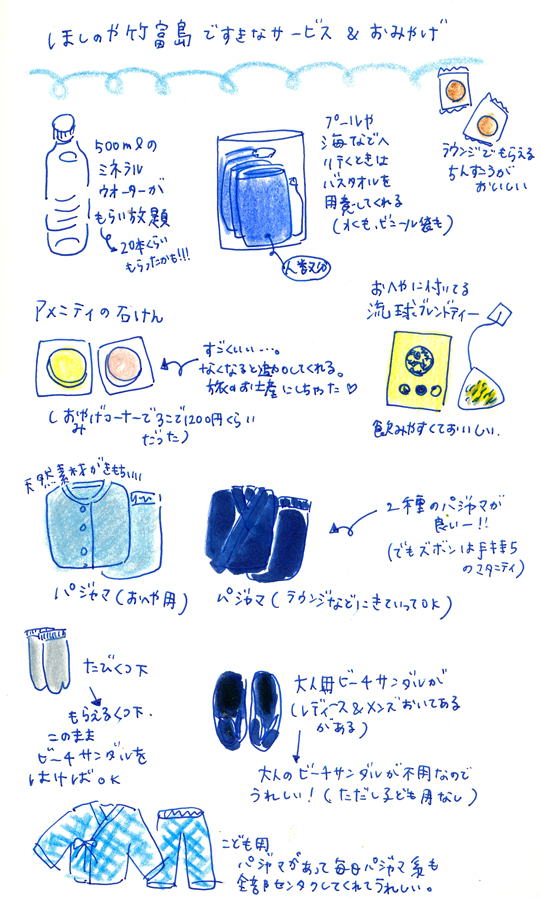 ほしのや竹富島ですきなサービス & おみやげ
ラウンジでもらえる
ちんすこうが
おいしい
500mlの
ミネラル
ウオーターが
もらい放題
20本くらい
もらったかも!!!
プールや
海などへ
行くときは
バスタオルを
用意してくれる
(水も、ビニール袋も)
人数分
おへやに付いてる
流球ブレンドティー
飲みやすくておいしい.
アメニティの石けん
すごくいい…。
なくなると追加してくれる。
旅のお土産にしちゃった♡
(おみやげコーナーで3こで1200円くらい
だった)
天然素材がきもちいい
パジャマ(おへや用)
パジャマ(ラウンジなどにきていってOK)
2種のパジャマが
良いー!!
(でもズボンは手持ち
のマタニティ)
たびくつ下
もらえるくつ下.
このまま
ビーチサンダルを
はけばOK
大人用ビーチサンダルが
(レディース&メンズおいてある
がある)
大人のビーチサンダルが不用なので
うれしい!(ただし子ども用なし)
こども用
パジャマがあって毎日パジャマ系も
全部センタクしてくれてうれしい。